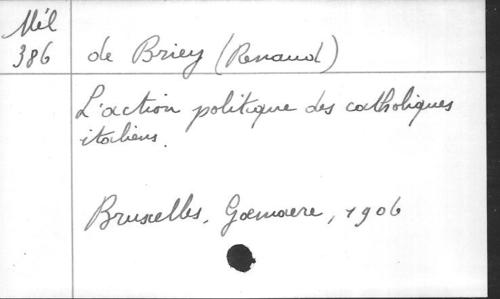 Mél
386
de Briey (Renaud)
L'action politique des catholiques
italiens.
Bruxelles, Goemaere, 1906